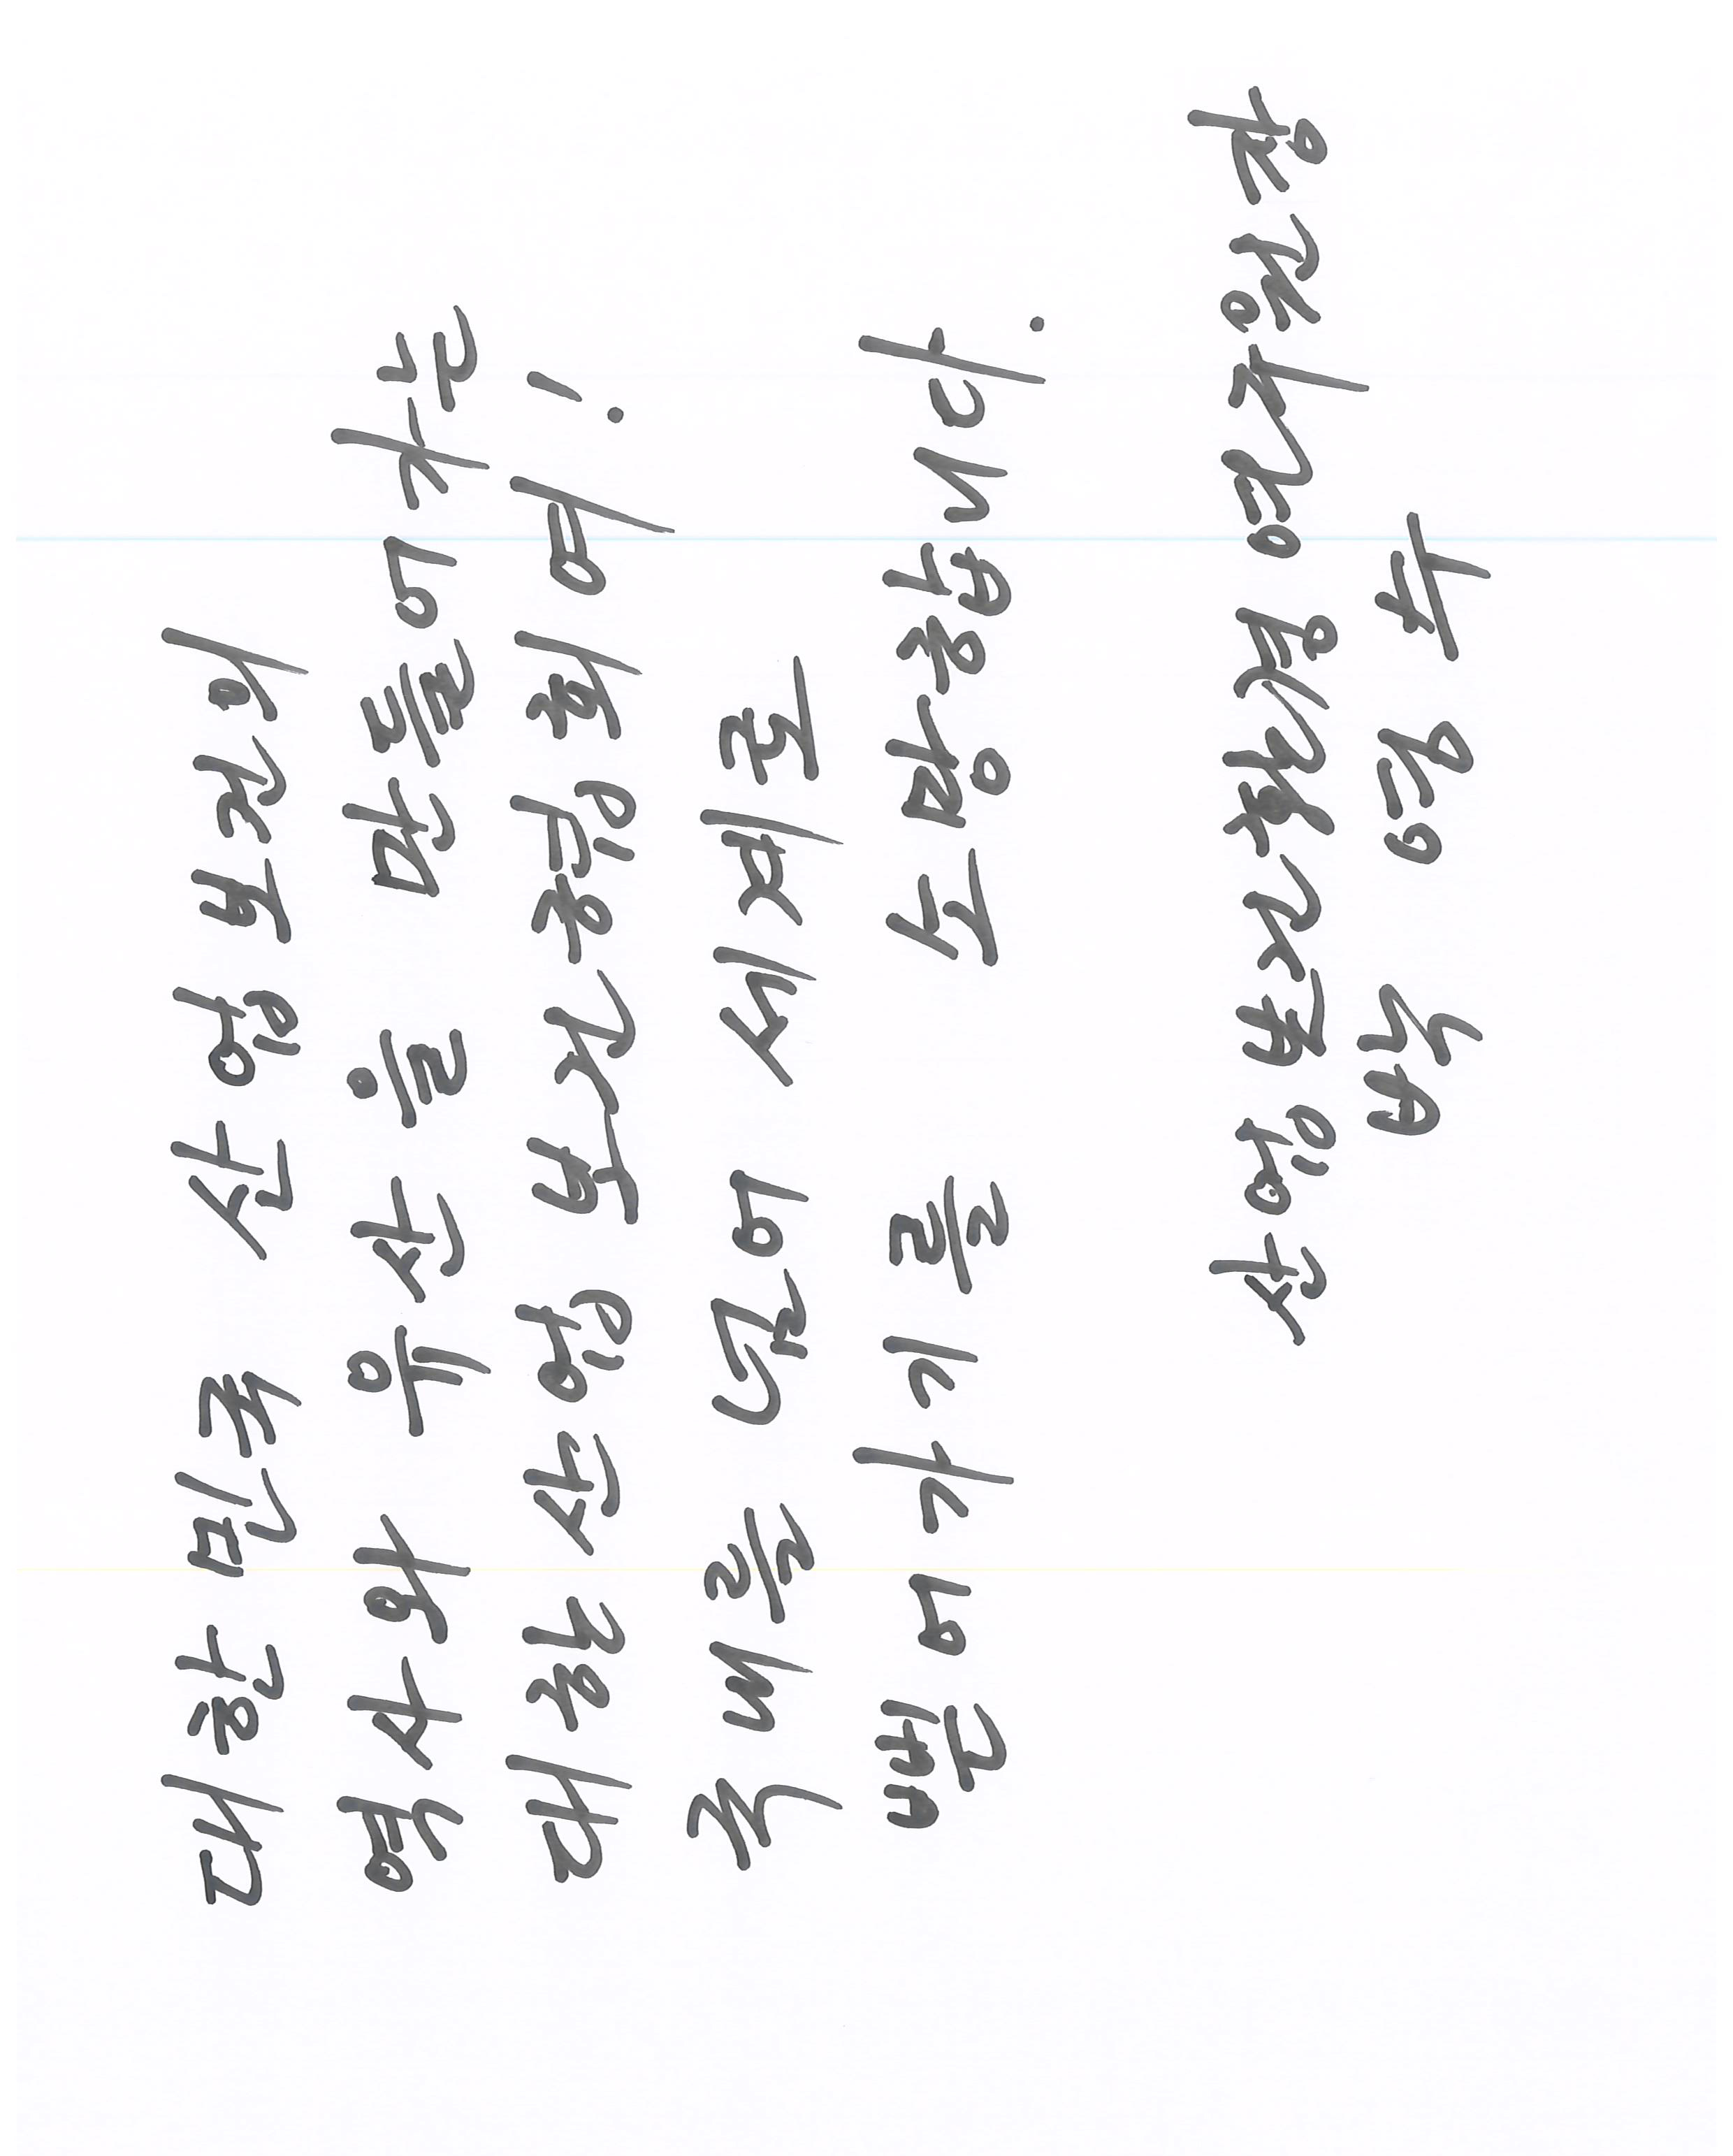 대한민국 산업보건의
역사와 유산을 만들어가는
대한산업보건협회여!
국내를 넘어 세계로
뻗어가기를 소망합니다.
산업보건환경연구원장
박 영 수